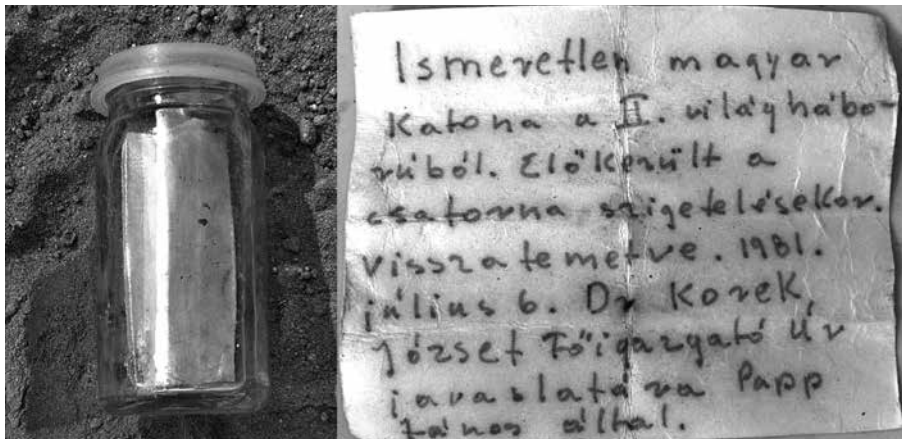 Ismeretlen magyar
Katona a II. világhábo-
rúból. Előkerült a
csatorna szigetelésekor.
visszatemetve. 1981.
július 6. Dr Korek,
József Főigazgató Úr
javaslatára Papp
János által.